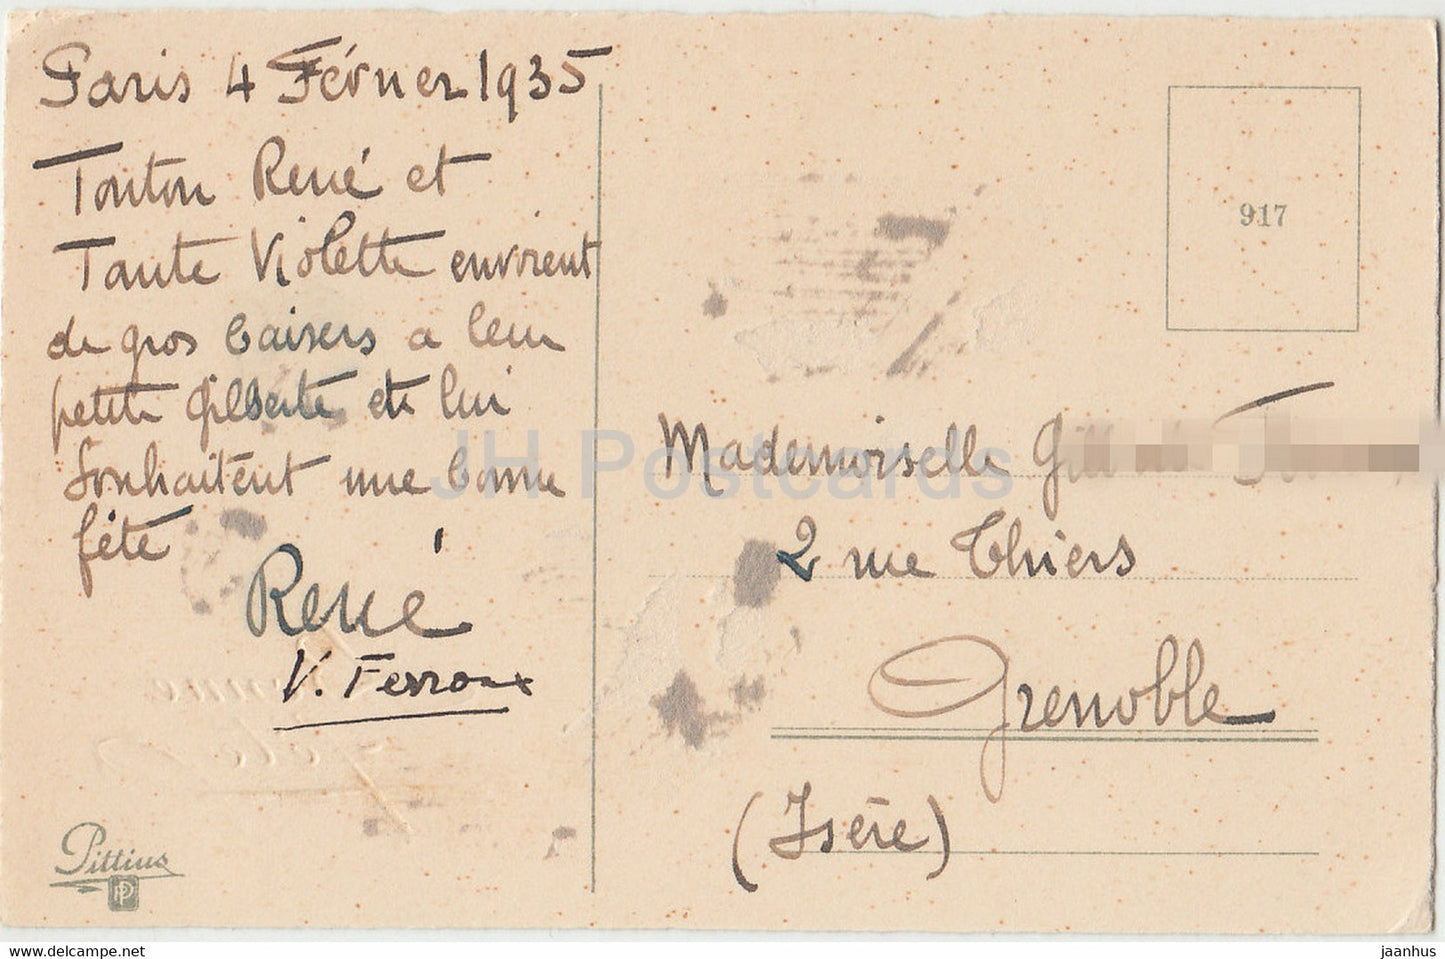 Paris 4 Février 1935
Tonton René et
Tante Violette envoient
de gros baisers a leur
petite Gilberte et lui
Souhaitent une bonne
fête
René
V. Ferroux
917
Mademoiselle
2 rue Thiers
Grenoble
(Isère)
Pittius
PP
JH Postcards
https://www.jhpostcards.com
jaanhus